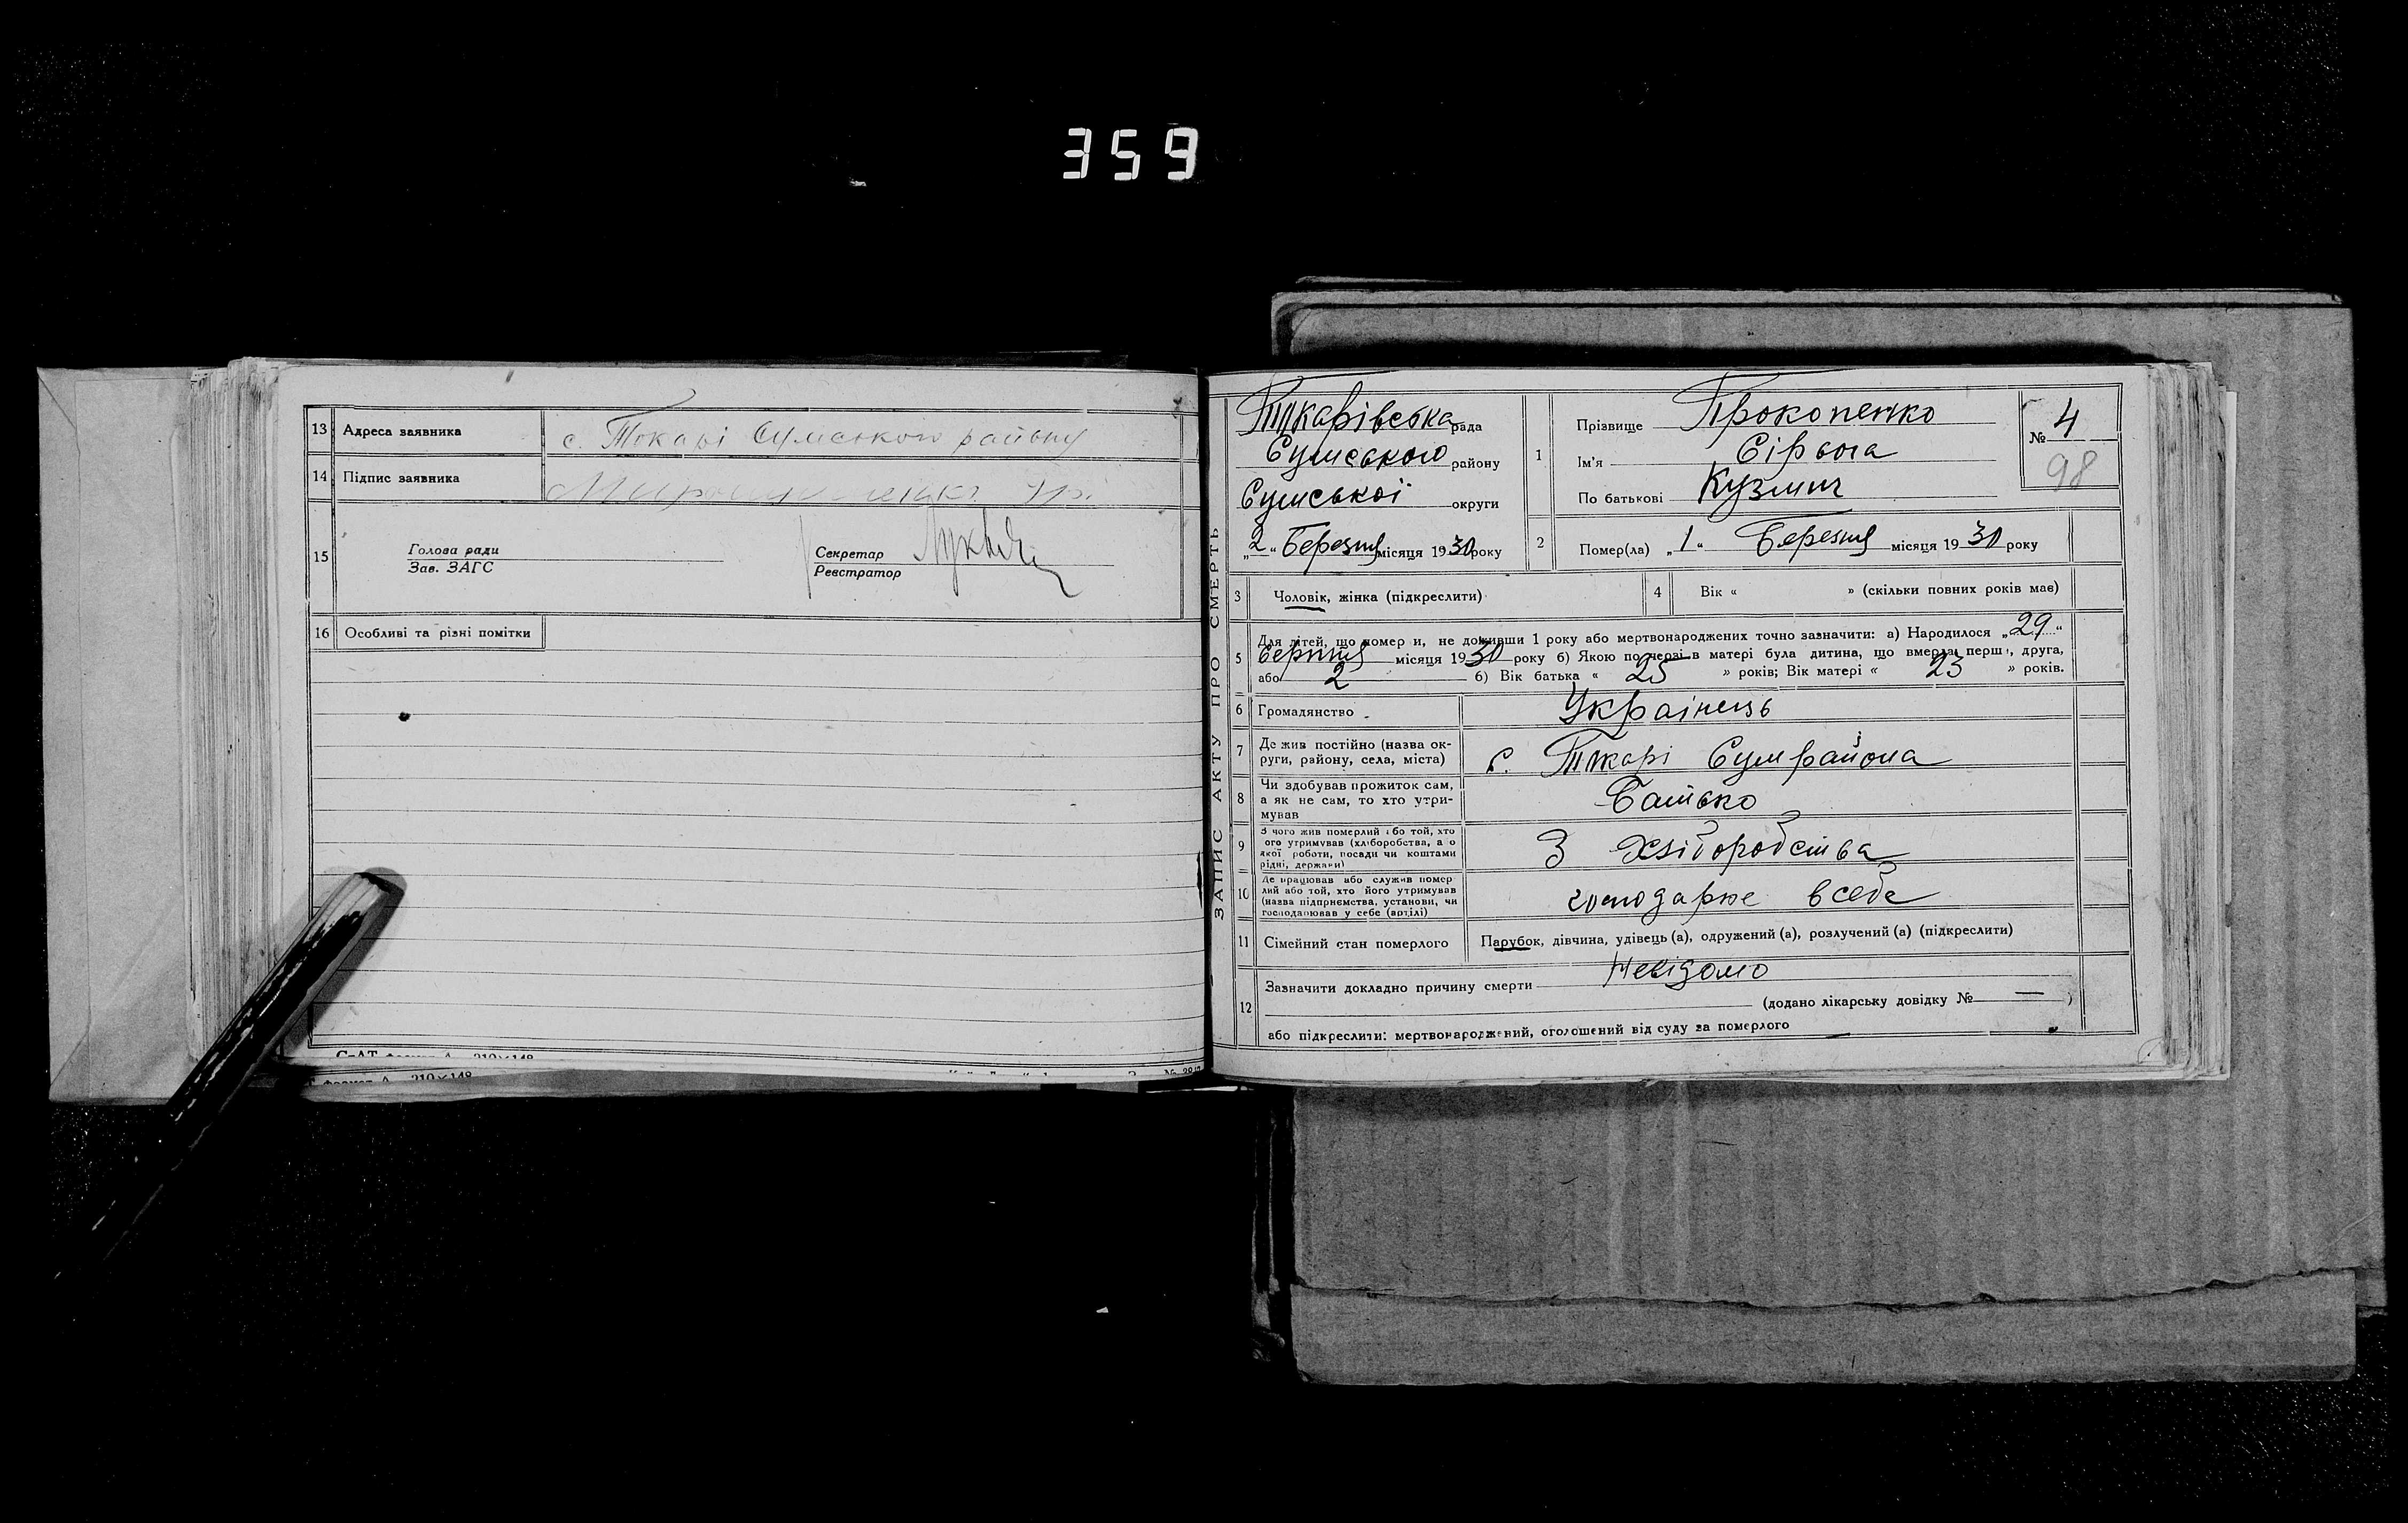 359
13 Адреса заявника с. Токарі Сумського району
14 Підпис заявника
15 Голова ради
Зав. ЗАГС
Секретар
Реєстратор
16 Особливі та різні помітки
ЗАПИС АКТУ ПРО СМЕРТЬ
Ткарівська рада
Сумського району
Сумської округи
„2“ Березня місяця 1930 року
1 Прізвище Прокопенко
Ім'я Сірьога
По батькові Кузмич
№ 4
98
2 Помер(ла) „1“ Березня місяця 1930 року
3 Чоловік, жінка (підкреслити)
4 Вік « » (скільки повних років має)
5 Для дітей, що померли, не доживши 1 року або мертвонароджених точно зазначити: а) Народилося „29“
місяця 1930 року б) Якою по черзі в матері була дитина, що вмерла: перша, друга,
або 2 б) Вік батька « 25 » років; Вік матері « 23 » років.
6 Громадянство Українець
7 Де жив постійно (назва ок-
руги, району, села, міста) с. Ткарі Сумрайона
8 Чи здобував прожиток сам,
а як не сам, то хто утри-
мував Батько
9 З чого жив померлий або той, хто
його утримував (хліборобства, або
якої роботи, посади чи коштами
рідні, держави) З хліборобства
10 Де працював або служив помер
лий або той, хто його утримував
(назва підприємства, установи, чи
господарював у себе (артілі) господарює всебе
11 Сімейний стан померлого Парубок, дівчина, удівець (а), одружений (а), розлучений (а) (підкреслити)
12 Зазначити докладно причину смерти Невідомо
(додано лікарську довідку № — )
або підкреслити: мертвонароджений, оголошений від суду за померлого